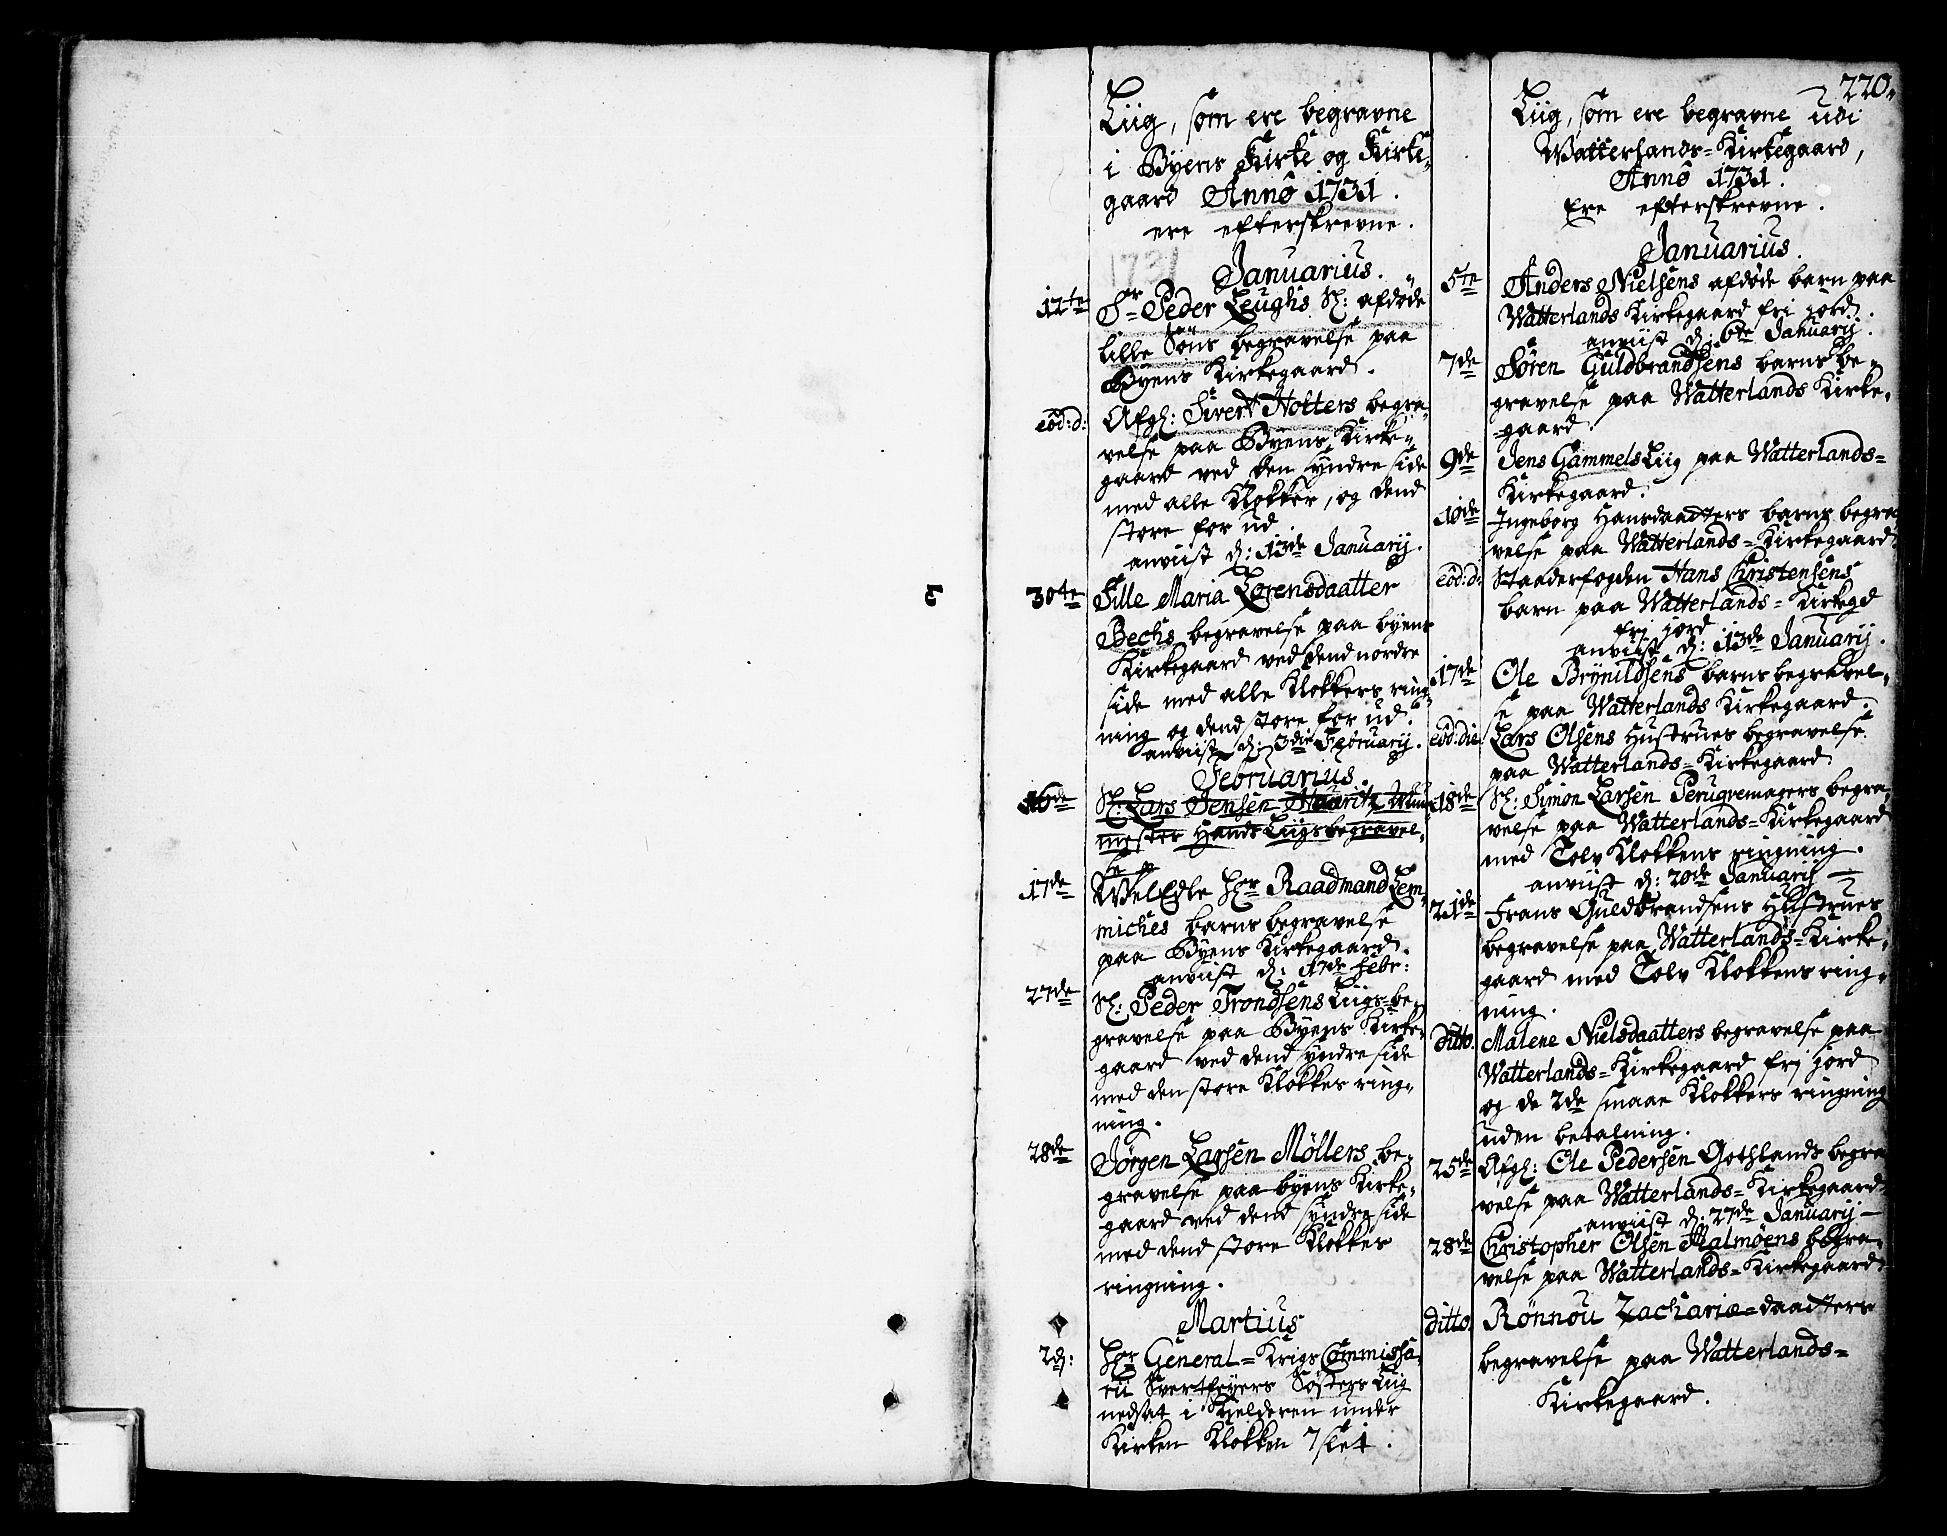 220.
Liig, som ere begravne
i Byens Kirke og Kirke-
gaard Anno 1731.
ere efterskrevne.
1731
Januarius.
12te Sr Peder Leughs Sl: afdøde
lille Søns begravelse paa
Byens Kirkegaard.
eod:d: Afgl: Sivert Hotters begra-
velse paa Byens Kirke-
gaard ved den syndre side
med alle Klokker, og dend
store for ud
anviist d: 13de Januarij.
30te Sille Maria Lorensdaatter
Bechs begravelse paa byens
Kirkegaard ved dend nordre
side med alle Klokkers ring-
ning og dend store for ud.
anviist d: 3die Februarij.
Februarius.
16de Sl: Lars Jensen Hauritz
mester Hands Liigs begravel-
se
17de WelEdle Hr Raadmand Lem-
miches barns begravelse
paa Byens Kirkegaard.
anviist d: 17de Febr:
27de Sl: Peder Trondsens Liigs-be-
gravelse paa Byens Kirke-
gaard ved dend syndre side
med den store Klokkes ring-
ning.
28de Jørgen Larsen Møllers be-
gravelse paa byens Kirke-
gaard ved dend syndre side
med dend store Klokkes
ringning.
Martius
2d: Hr General-Krigs Commissa-
rii Svertfeyers Søsters Liig
nedsat i Kielderen under
Kirken Klokken 7 slet.
Liig, som ere begravne udi
Watterlands-Kirkegaard,
Anno 1731.
Ere efterskrevne.
Januarius.
5te Anders Nielsens afdøde barn paa
Watterlands Kirkegaard fri jord.
anviist d: 6te Januarij.
7de Søren Guldbrandsens barns be-
gravelse paa Watterlands Kirke-
-gaard.
9de Jens Gammels Liig paa Watterlands-
Kirkegaard.
10de Ingeborg Hansdaatters barns begra
velse paa Watterlands-Kirkegaard
eod:d: Staaderfogden Hans Christensens
barn paa Watterlands-Kirkegd
frj jord
anviist d: 13de Januarij.
17de Ole Brÿnildsens barns begravel-
se paa Watterlands Kirkegaard.
eod:die: Lars Olsens Hustrues begravelse
paa Watterlands-Kirkegaard
18de Sl: Simon Larsen Perugvemagers begra-
velse paa Watterlands-Kirkegaard
med Tolv Klokkens ringning.
anviist d: 20de Januarij
21de Frans Guldbrandsens Hustrues
begravelse paa Watterlands-Kirke-
gaard med Tolv Klokkens ring-
ning.
ditto. Malene Nielsdaatters begravelse paa
Watterlands-Kirkegaard frj jord
og de 2de smaae Klokkers ringning
uden betalning.
25de Afgl: Ole Pedersen Gothlands begra
velse paa Watterlands-Kirkegaard
anviist d: 27de Januarij
28de Christopher Olsen Malmøens begra-
velse paa Watterlands-Kirkegaard
ditto. Rønnou Zachariæ-daatters
begravelse paa Watterlands-
Kirkegaard.